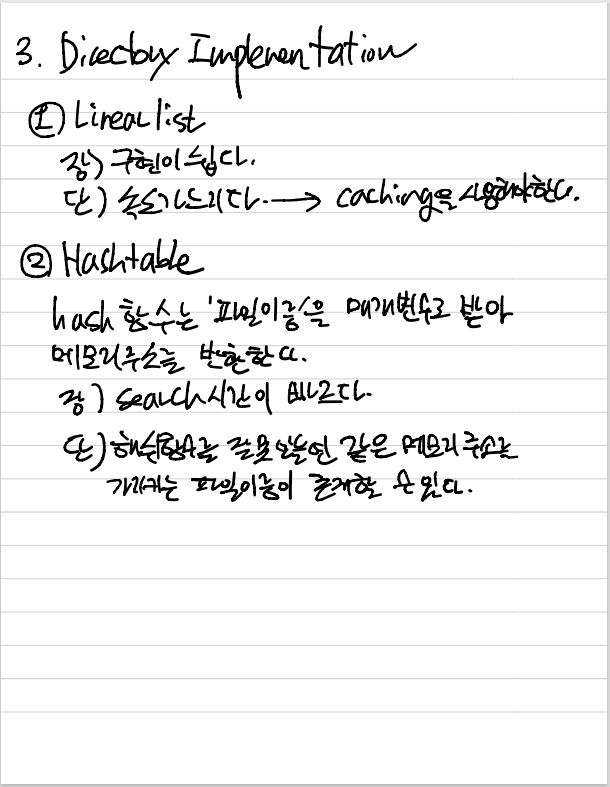 3. Directory Implementation
① Linear list
장) 구현이 쉽다.
단) 속도가 느리다. → caching을 사용해야한다.
② Hashtable
hash 함수는 '파일이름'을 매개변수로 받아
메모리주소를 반환한다.
장) search시간이 빠르다.
단) 해쉬함수를 잘못 만들면 같은 메모리 주소를
가리키는 파일이름이 존재할 수 있다.